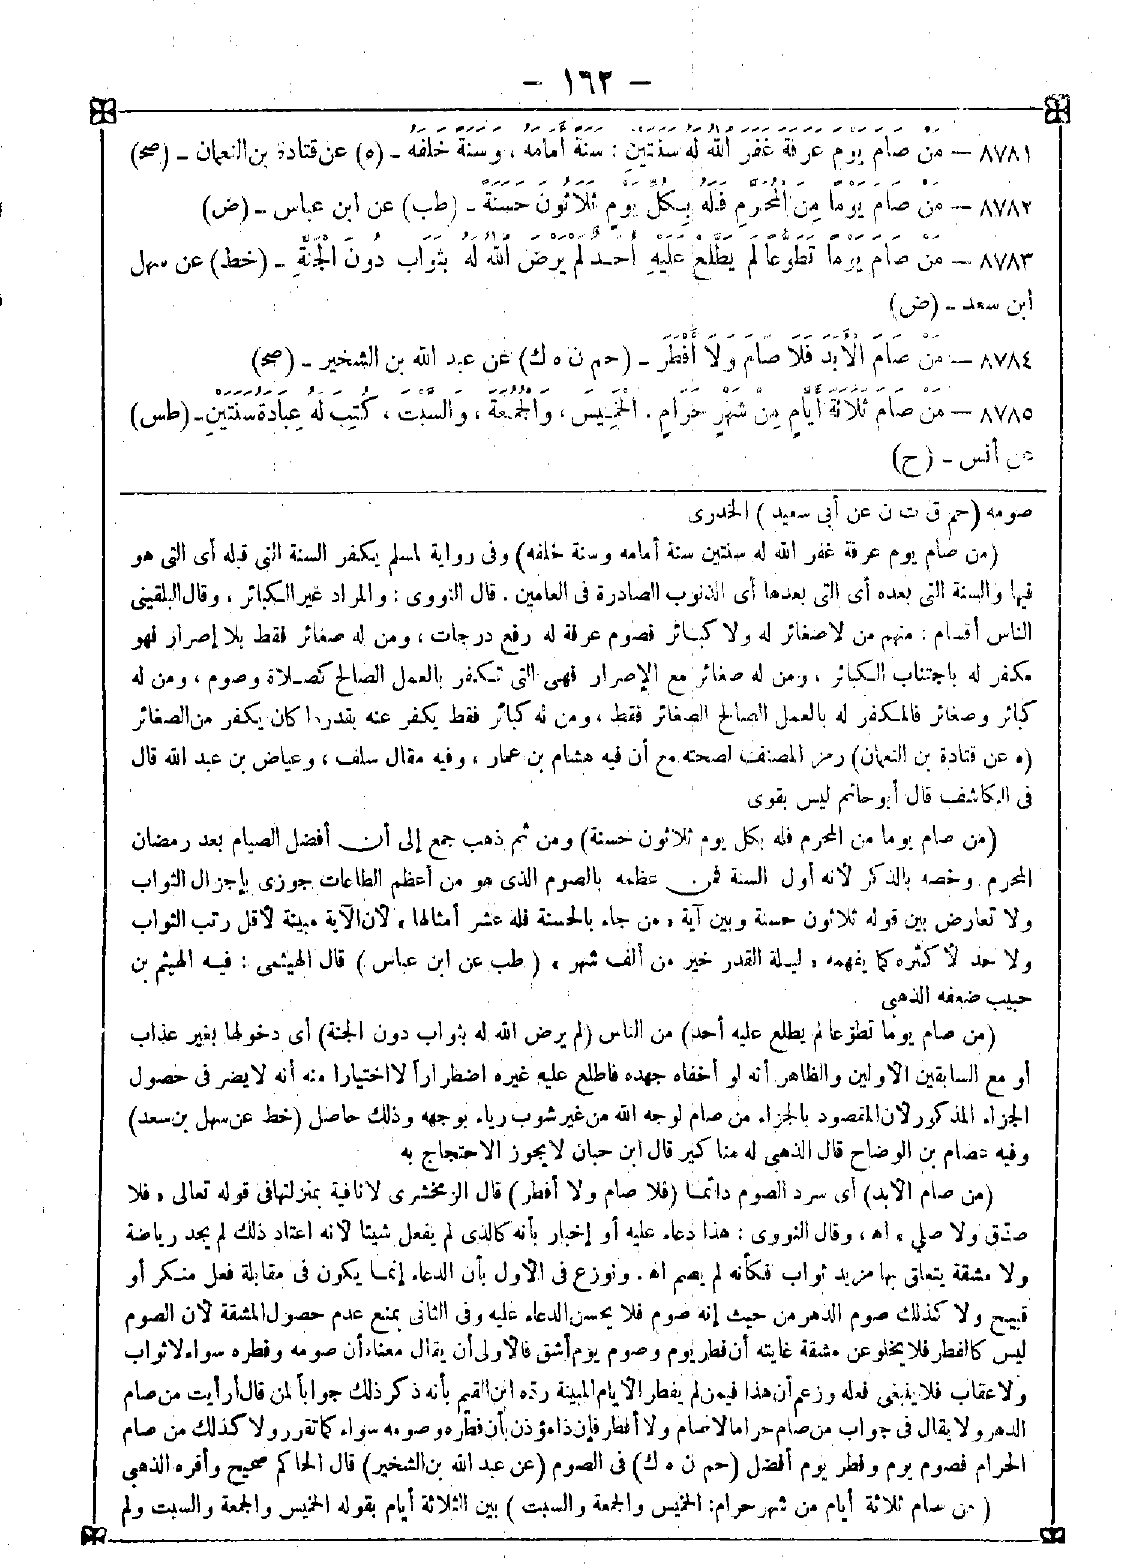 - ١٦٢ -
٨٧٨١ - مَنْ صَامَ يَوْمَ عَرَفَةَ غَفَرَ اللهُ لَهُ سَنَتَيْنِ : سَنَةً أَمَامَهُ ، وَسَنَةً خَلْفَهُ - (ه) عن قتادة بن النعمان - (صح)
٨٧٨٢ - مَنْ صَامَ يَوْمًا مِنَ الْمُحَرَّمِ فَلَهُ بِكُلِّ يَوْمٍ ثَلَاثُونَ حَسَنَةً - (طب) عن ابن عباس - (ض)
٨٧٨٣ - مَنْ صَامَ يَوْمًا تَطَوُّعًا لَمْ يَطَّلِعْ عَلَيْهِ أَحَدٌ لَمْ يَرْضَ اللهُ لَهُ بِثَوَابٍ دُونَ الْجَنَّةِ - (خط) عن سهل
ابن سعد - (ض)
٨٧٨٤ - مَنْ صَامَ الْأَبَدَ فَلَا صَامَ وَلَا أَفْطَرَ - (حم ن ه ك) عن عبد الله بن الشخير - (صح)
٨٧٨٥ - مَنْ صَامَ ثَلَاثَةَ أَيَّامٍ مِنْ شَهْرٍ حَرَامٍ . الْخَمِيسَ ، وَالْجُمُعَةَ ، وَالسَّبْتَ ، كُتِبَ لَهُ عِبَادَةُ سَنَتَيْنِ - (طس)
عن أنس - (ح)
صومه (حم ق ت ن عن أبى سعيد ) الخدرى
(من صام يوم عرفة غفر الله له سنتين سنة أمامه وسنة خلفه) وفى رواية لمسلم يكفر السنة التى قبله أى التى هو
فيها والسنة التى بعده أى التى بعدها أى الذنوب الصادرة فى العامين . قال النووى : والمراد غير الكبائر ، وقال البلقينى
الناس أقسام : منهم من لاصغائر له ولا كبائر فصوم عرفة له رفع درجات ، ومن له صغائر فقط بلا إصرار فهو
مكفر له باجتناب الكبائر ، ومن له صغائر مع الإصرار فهى التى تكفر بالعمل الصالح كصلاة وصوم ، ومن له
كبائر وصغائر فالمكفر له بالعمل الصالح الصغائر فقط ، ومن له كبائر فقط يكفر عنه بقدر ما كان يكفر من الصغائر
(ه عن قتادة بن النعمان) رمز المصنف لصحته مع أن فيه هشام بن عمار ، وفيه مقال سلف ، وعياض بن عبد الله قال
فى الكاشف قال أبو حاتم ليس بقوى
(من صام يوما من المحرم فله بكل يوم ثلاثون حسنة) ومن ثم ذهب جمع إلى أن أفضل الصيام بعد رمضان
المحرم وخصه بالذكر لأنه أول السنة فمن عظمه بالصوم الذى هو من أعظم الطاعات جوزى بإجزال الثواب
ولا تعارض بين قوله ثلاثون حسنة وبين آية «من جاء بالحسنة فله عشر أمثالها» لأن الآية مبينة لأقل رتب الثواب
ولا حد لأكثره كما يفهمه « ليلة القدر خير من ألف شهر » ( طب عن ابن عباس ) قال الهيثمى : فيه الهيثم بن
حبيب ضعفه الذهبى
(من صام يوما تطوّعا لم يطلع عليه أحد) من الناس (لم يرض الله له بثواب دون الجنة) أى دخولها بغير عذاب
أو مع السابقين الأولين والظاهر أنه لو أخفاه جهده فاطلع عليه غيره اضطراراً لا اختيارا منه أنه لا يضر فى حصول
الجزاء المذكور لأن المقصود بالجزاء من صام لوجه الله من غير شوب رياء بوجهه وذلك حاصل (خط عن سهل بن سعد)
وفيه عصام بن الوضاح قال الذهبى له مناكير قال ابن حبان لا يجوز الاحتجاج به
(من صام الأبد) أى سرد الصوم دائما (فلا صام ولا أفطر) قال الزمخشرى لا نافية بمنزلتها فى قوله تعالى « فلا
صدّق ولا صلى » اه ، وقال النووى : هذا دعاء عليه أو إخبار بأنه كالذى لم يفعل شيئا لأنه اعتاد ذلك لم يجد رياضة
ولا مشقة يتعلق بها مزيد ثواب فكأنه لم يصم اه . ونوزع فى الأول بأن الدعاء إنما يكون فى مقابلة فعل منكر أو
قبيح ولا كذلك صوم الدهر من حيث إنه صوم فلا يحسن الدعاء عليه وفى الثانى بمنع عدم حصول المشقة لأن الصوم
ليس كالفطر فلا يخلو عن مشقة غايته أن فطر يوم وصوم يوم أشق فالأولى أن يقال معناه أن صومه وفطره سواء لا ثواب
ولا عقاب فلا ينبغى فعله وزعم أن هذا فيمن لم يفطر الأيام المبينة ردّه ابن القيم بأنه ذكر ذلك جواباً لمن قال أرأيت من صام
الدهر ولا يقال فى جواب من صام حراما لا صام ولا أفطر فإن ذا مؤذن بأن فطره وصومه سواء كما تقرر ولا كذلك من صام
الحرام فصوم يوم وفطر يوم أفضل (حم ن ه ك) فى الصوم (عن عبد الله بن الشخير) قال الحاكم صحيح وأقره الذهبى
( من صام ثلاثة أيام من شهر حرام: الخميس والجمعة والسبت ) بين الثلاثة أيام بقوله الخميس والجمعة والسبت ولم